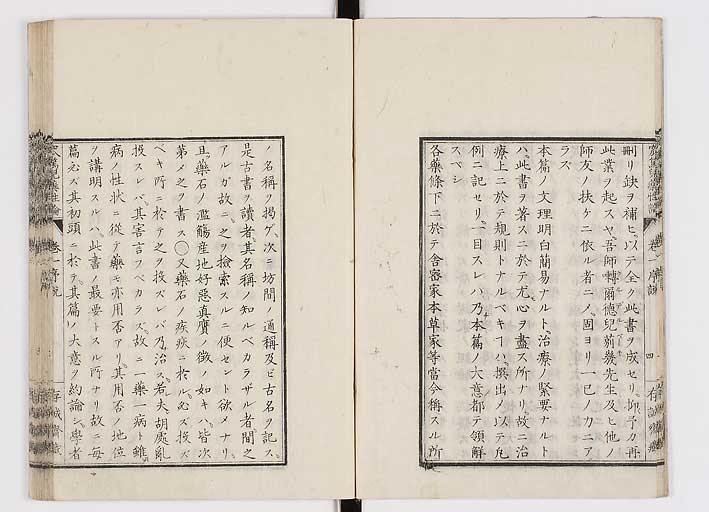 刪リ缺ヲ補ヒ以テ全ク此書ヲ成セリ抑予カ再
此業ヲ起スヤ吾師轉爾德兒前幾先生及ヒ他ノ
師友ノ扶ケニ依ル者ニノ固ヨリ一已ノ力ニア
ラズ
本篇ノ文理明白簡易ナルト治療ノ緊要ナルト
ハ此書ヲ著スニ於テ尤心ヲ盡ス所ナリ故ニ治
療上ニ於テ規則トナルベキヿハ撰出ノ以テ凢
例ニ記セリ一目スレハ乃本篇ノ大意都テ領解
スベシ
各藥條下ニ於テ舎密家本草家等當今稱スル所
四
ノ名稱ヲ掲ゲ次ニ坊間ノ通稱及ビ古名ヲ記ス
是古書ヲ讀者其名稱ノ知ルベカラザル者間之
アルガ故ニ之ヲ檢索スルニ便セント欲メナリ
且藥石ノ濫觴産地好惡真贋ノ徴ノ如キハ皆次
第メ之ヲ書ス○又藥石ノ疾疢ニ於ル必ズ投ズ
ベキ所ニ於テ之ヲ投ズレバ乃治ス若夫胡處亂
投スレバ其害言フベカラズ故ニ一藥一病ト雖
病ノ性状ニ從テ藥モ亦用否アリ其用否ノ地位
ヲ講明スルハ此書ノ最要トスル所ナリ故ニ毎
篇必ズ其初頭ニ於テ其篇ノ大意ヲ約論シ學者
卷一序説